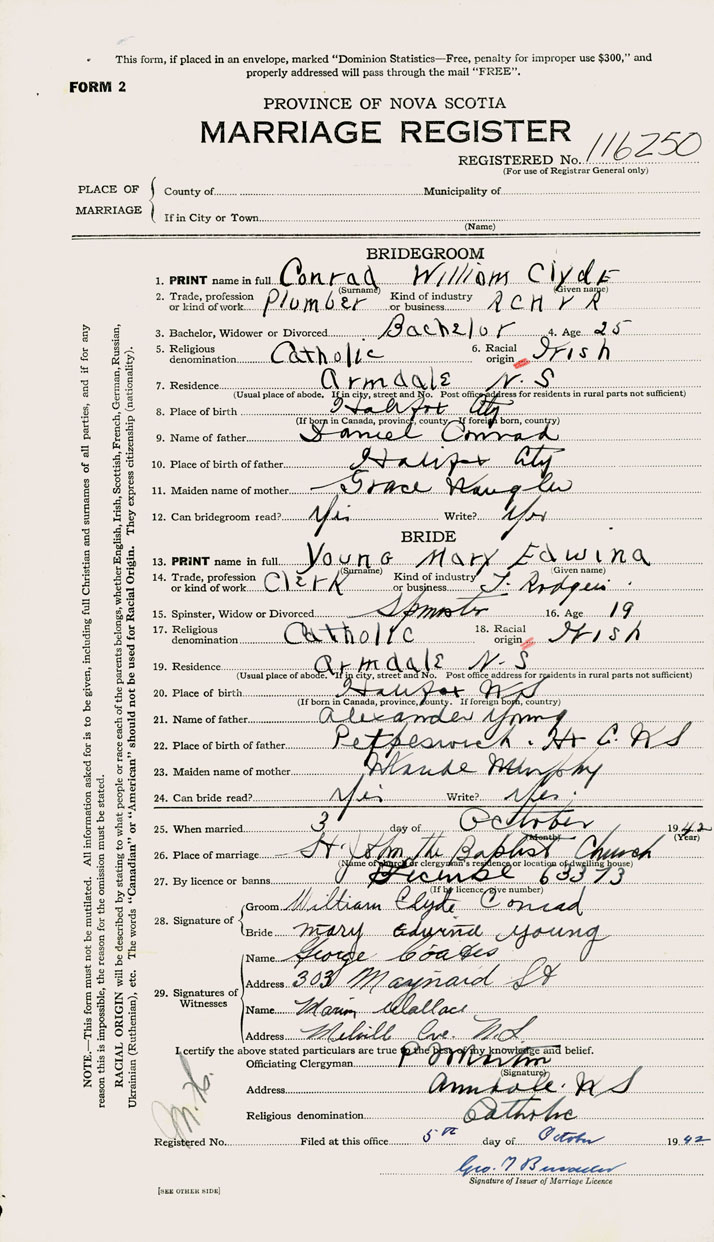 This form, if placed in an envelope, marked "Dominion Statistics—Free, penalty for improper use $300," and
properly addressed will pass through the mail "FREE".
FORM 2
PROVINCE OF NOVA SCOTIA
MARRIAGE REGISTER
REGISTERED No. 116250
(For use of Registrar General only)
PLACE OF MARRIAGE
County of Municipality of
If in City or Town
(Name)
BRIDEGROOM
1. PRINT name in full Conrad William Clyde
(Surname) (Given name)
2. Trade, profession or kind of work Plumber Kind of industry or business R C N V R
3. Bachelor, Widower or Divorced Bachelor 4. Age 25
5. Religious denomination Catholic 6. Racial origin Irish
7. Residence Armdale N.S
(Usual place of abode. If in city, street and No. Post office address for residents in rural parts not sufficient)
8. Place of birth Halifax City
(If born in Canada, province, county. If foreign born, country)
9. Name of father Daniel Conrad
10. Place of birth of father Halifax City
11. Maiden name of mother Grace Naugler
12. Can bridegroom read? Yes Write? Yes
BRIDE
13. PRINT name in full Young Mary Edwina
(Surname) (Given name)
14. Trade, profession or kind of work Clerk Kind of industry or business
15. Spinster, Widow or Divorced Spinster 16. Age 19
17. Religious denomination Catholic 18. Racial origin Irish
19. Residence Armdale N.S
(Usual place of abode. If in city, street and No. Post office address for residents in rural parts not sufficient)
20. Place of birth Halifax N S
(If born in Canada, province, county. If foreign born, country)
21. Name of father Alexander Young
22. Place of birth of father Petpeswick. Hx C. N S
23. Maiden name of mother Maude Murphy
24. Can bride read? Yes Write? Yes.
25. When married 3 day of October 1942
(Month) (Year)
26. Place of marriage St John the Baptist Church
(Name of church or clergyman's residence or location of dwelling house)
27. By licence or banns License 63373
(If by licence, give number)
28. Signature of
Groom William Clyde Conrad
Bride Mary Edwina Young
29. Signatures of Witnesses
Name George Coates
Address 303 Maynard St
Name Marion Wallace
Address Melvill Cve. N.S.
I certify the above stated particulars are true to the best of my knowledge and belief.
Officiating Clergyman Martin
(Signature)
Address Armdale. N S
Religious denomination Catholic
Registered No. Filed at this office 5th day of October 1942
Geo.
Signature of Issuer of Marriage Licence
[SEE OTHER SIDE]
NOTE.—This form must not be mutilated. All information asked for is to be given, including full Christian and surnames of all parties, and if for any
reason this is impossible, the reason for the omission must be stated.
RACIAL ORIGIN will be described by stating to what people or race each of the parents belongs, whether English, Irish, Scottish, French, German, Russian,
Ukrainian (Ruthenian), etc. The words "Canadian" or "American" should not be used for Racial Origin. They express citizenship (nationality).